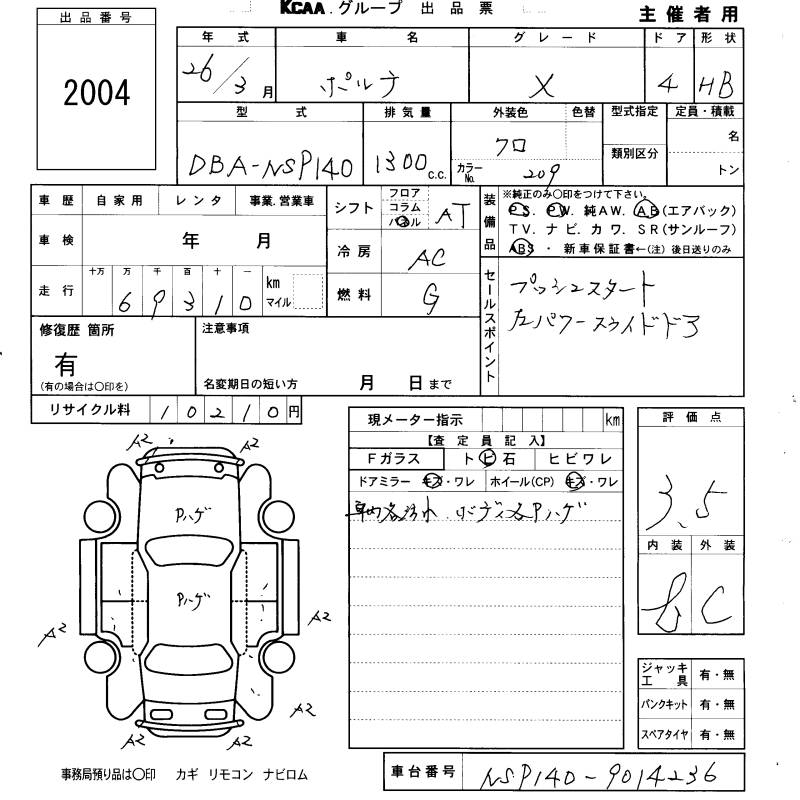 KCAA.グループ 出品票
主催者用
出品番号
2004
年式 車名 グレード ドア 形状
26/3月 ポルテ X 4 HB
型式 排気量 外装色 色替 型式指定 定員・積載
類別区分
名
トン
DBA-NSP140 1300c.c. クロ カラーNo. 209
車歴 自家用 レンタ 事業.営業車
車検 年 月
走行 十万 万 千 百 十 一 km マイル
6 9 3 1 0
シフト フロア コラム パネル AT
冷房 AC
燃料 G
装備品
※純正のみ〇印をつけて下さい。
PS. PW. 純AW. AB(エアバック)
TV. ナビ. カワ. SR(サンルーフ)
ABS ・ 新車保証書←(注) 後日送りのみ
セールスポイント
プッシュスタート
左パワースライドドア
修復歴 箇所
有
(有の場合は〇印を)
注意事項
名変期日の短い方 月 日まで
リサイクル料 10210円
現メーター指示 km
【査定員記入】
Fガラス トビ石 ヒビワレ
ドアミラー キズ・ワレ ホイール(CP) キズ・ワレ
車内各汚れ ボディ各Pハゲ
評価点
3.5
内装 外装
C
ジャッキ工具 有・無
パンクキット 有・無
スペアタイヤ 有・無
A2 A2
Pハゲ
Pハゲ
A2 A2
A2
A2 A2
事務局預り品は〇印 カギ リモコン ナビロム
車台番号 NSP140-9014236